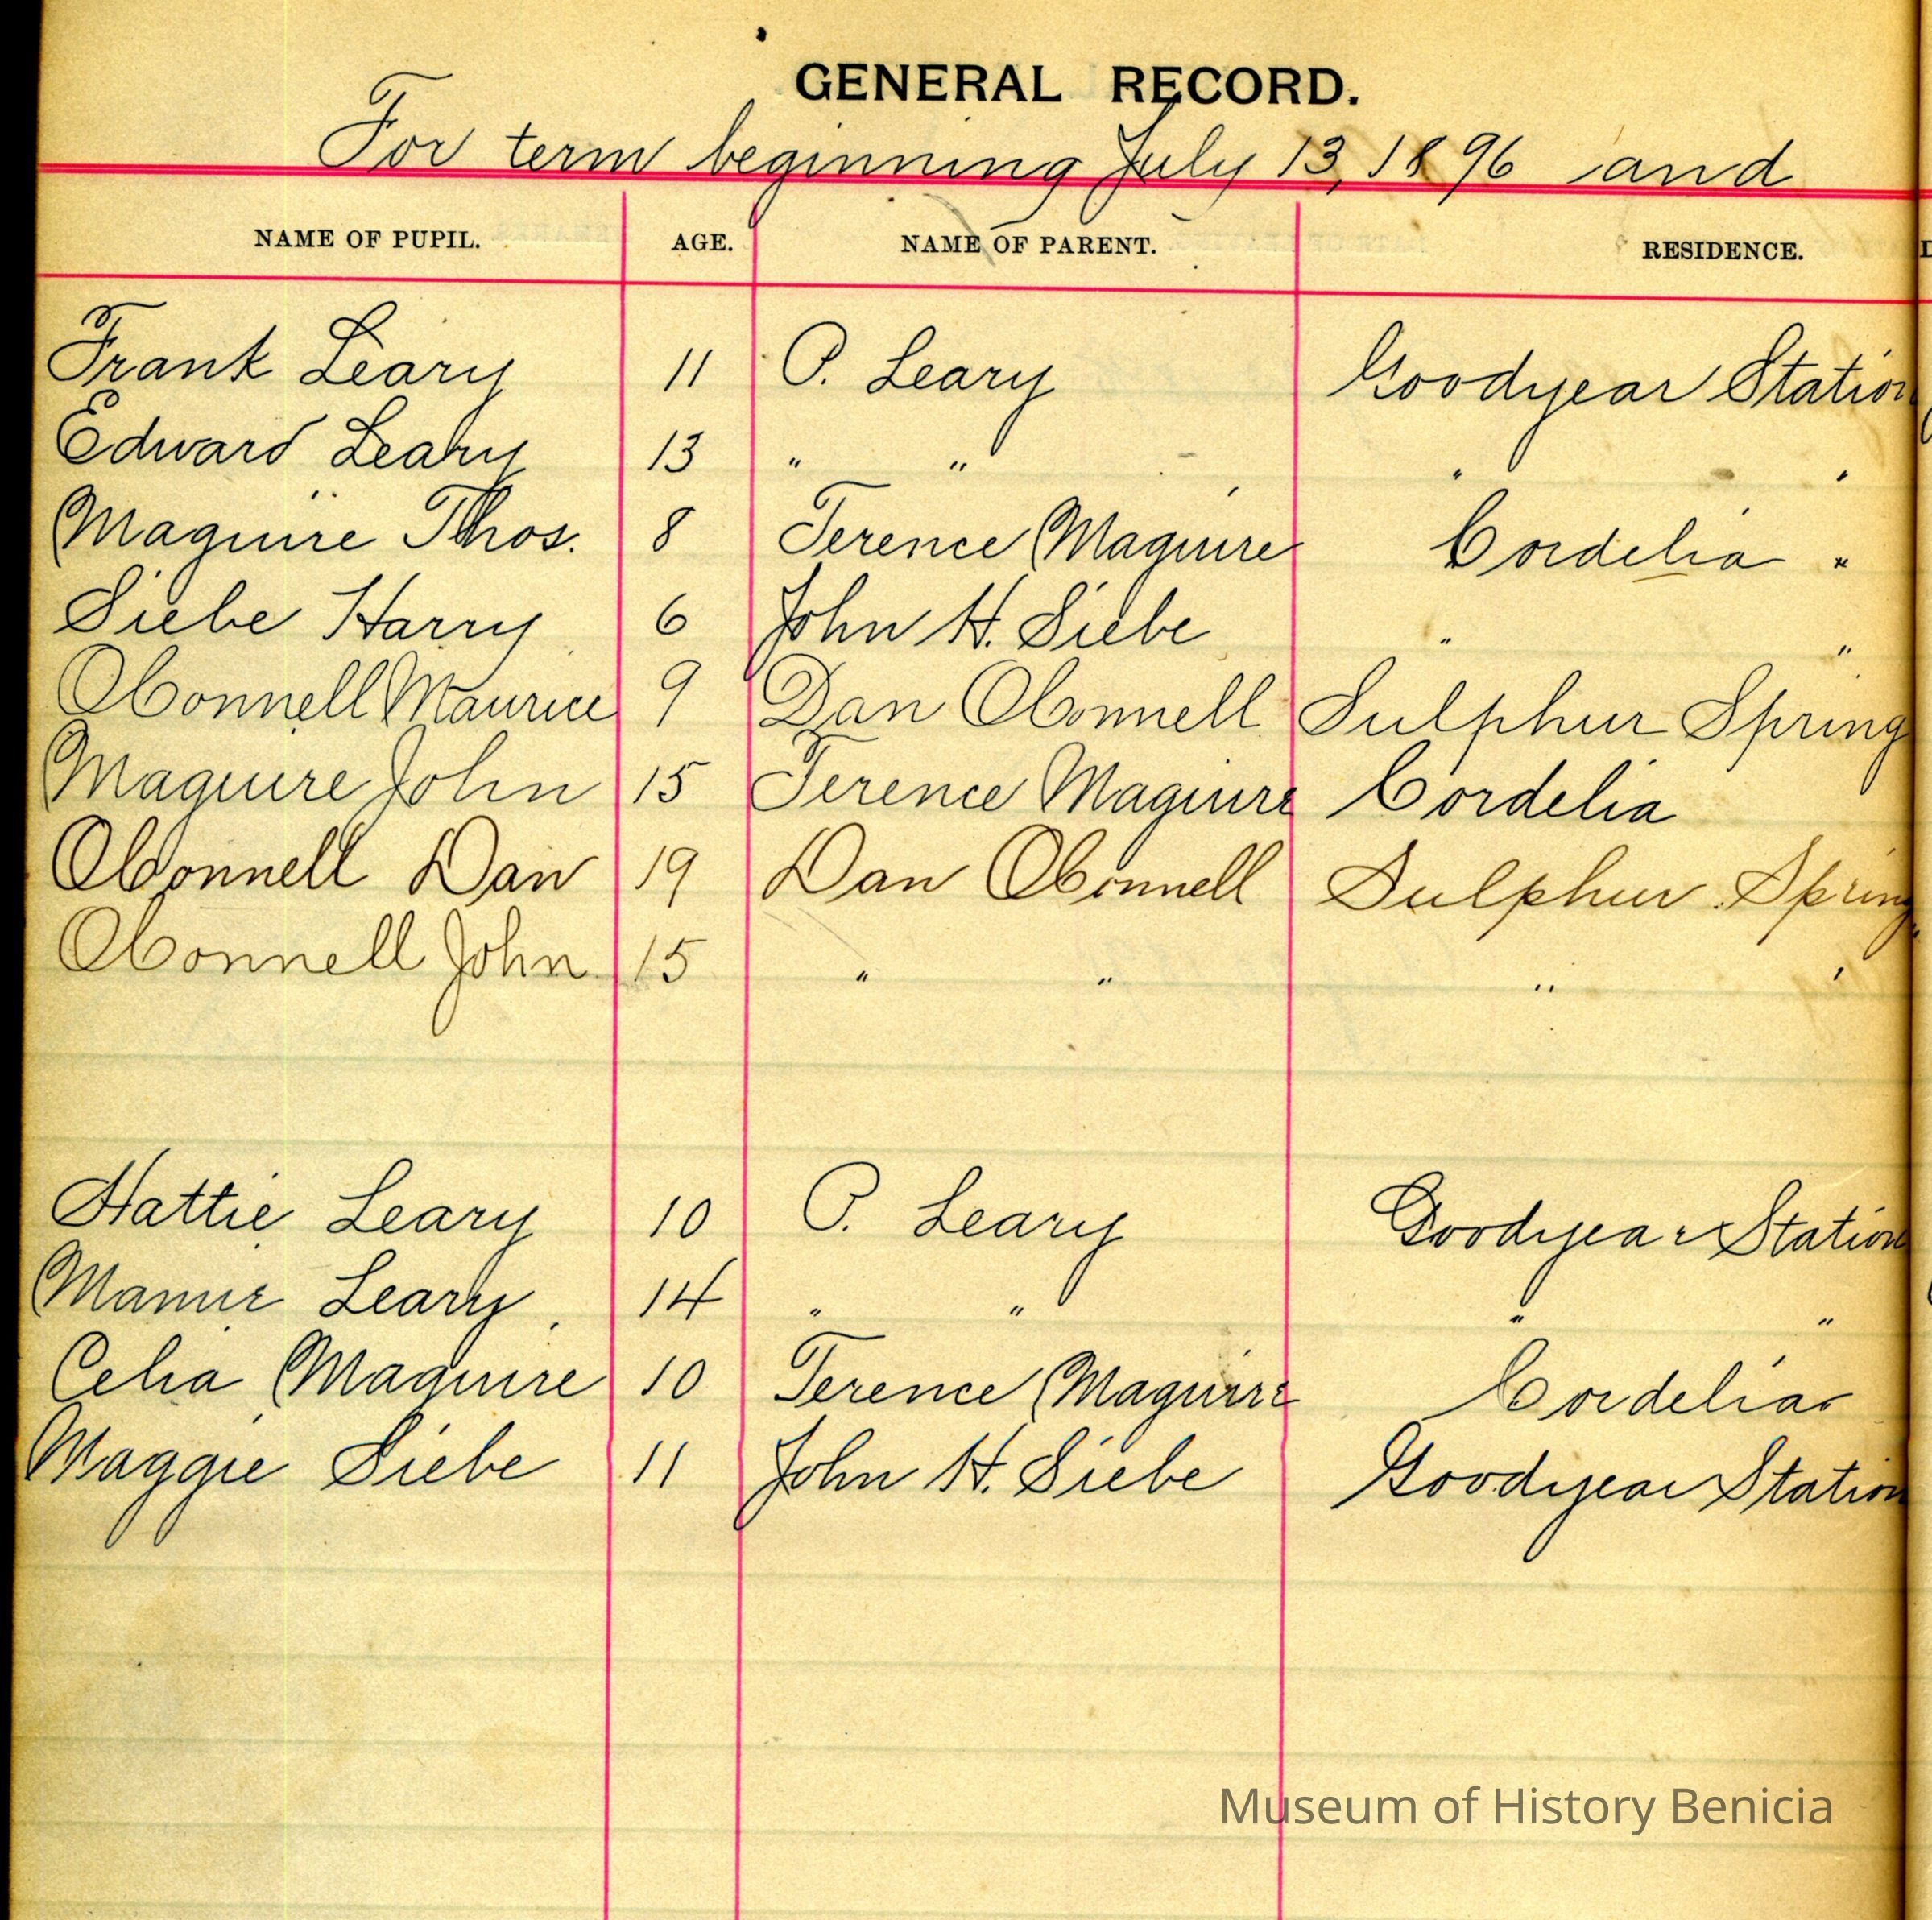 GENERAL RECORD.
For term beginning July 13, 1896 and
NAME OF PUPIL. AGE. NAME OF PARENT. RESIDENCE.
Frank Leary 11 P. Leary Goodyear Station
Edward Leary 13 " " " "
Maguire Thos. 8 Terence Maguire Cordelia "
Siebe Harry 6 John H. Siebe " "
OConnell Maurice 9 Dan OConnell Sulphur Spring
Maguire John 15 Terence Maguire Cordelia
OConnell Dan 19 Dan OConnell Sulphur Spring
OConnell John 15 " " " "
Hattie Leary 10 P. Leary Goodyear Station
Mamie Leary. 14 " " " "
Celia Maguire 10 Terence Maguire Cordelia
Maggie Siebe 11 John H. Siebe Goodyear Station
Museum of History Benicia